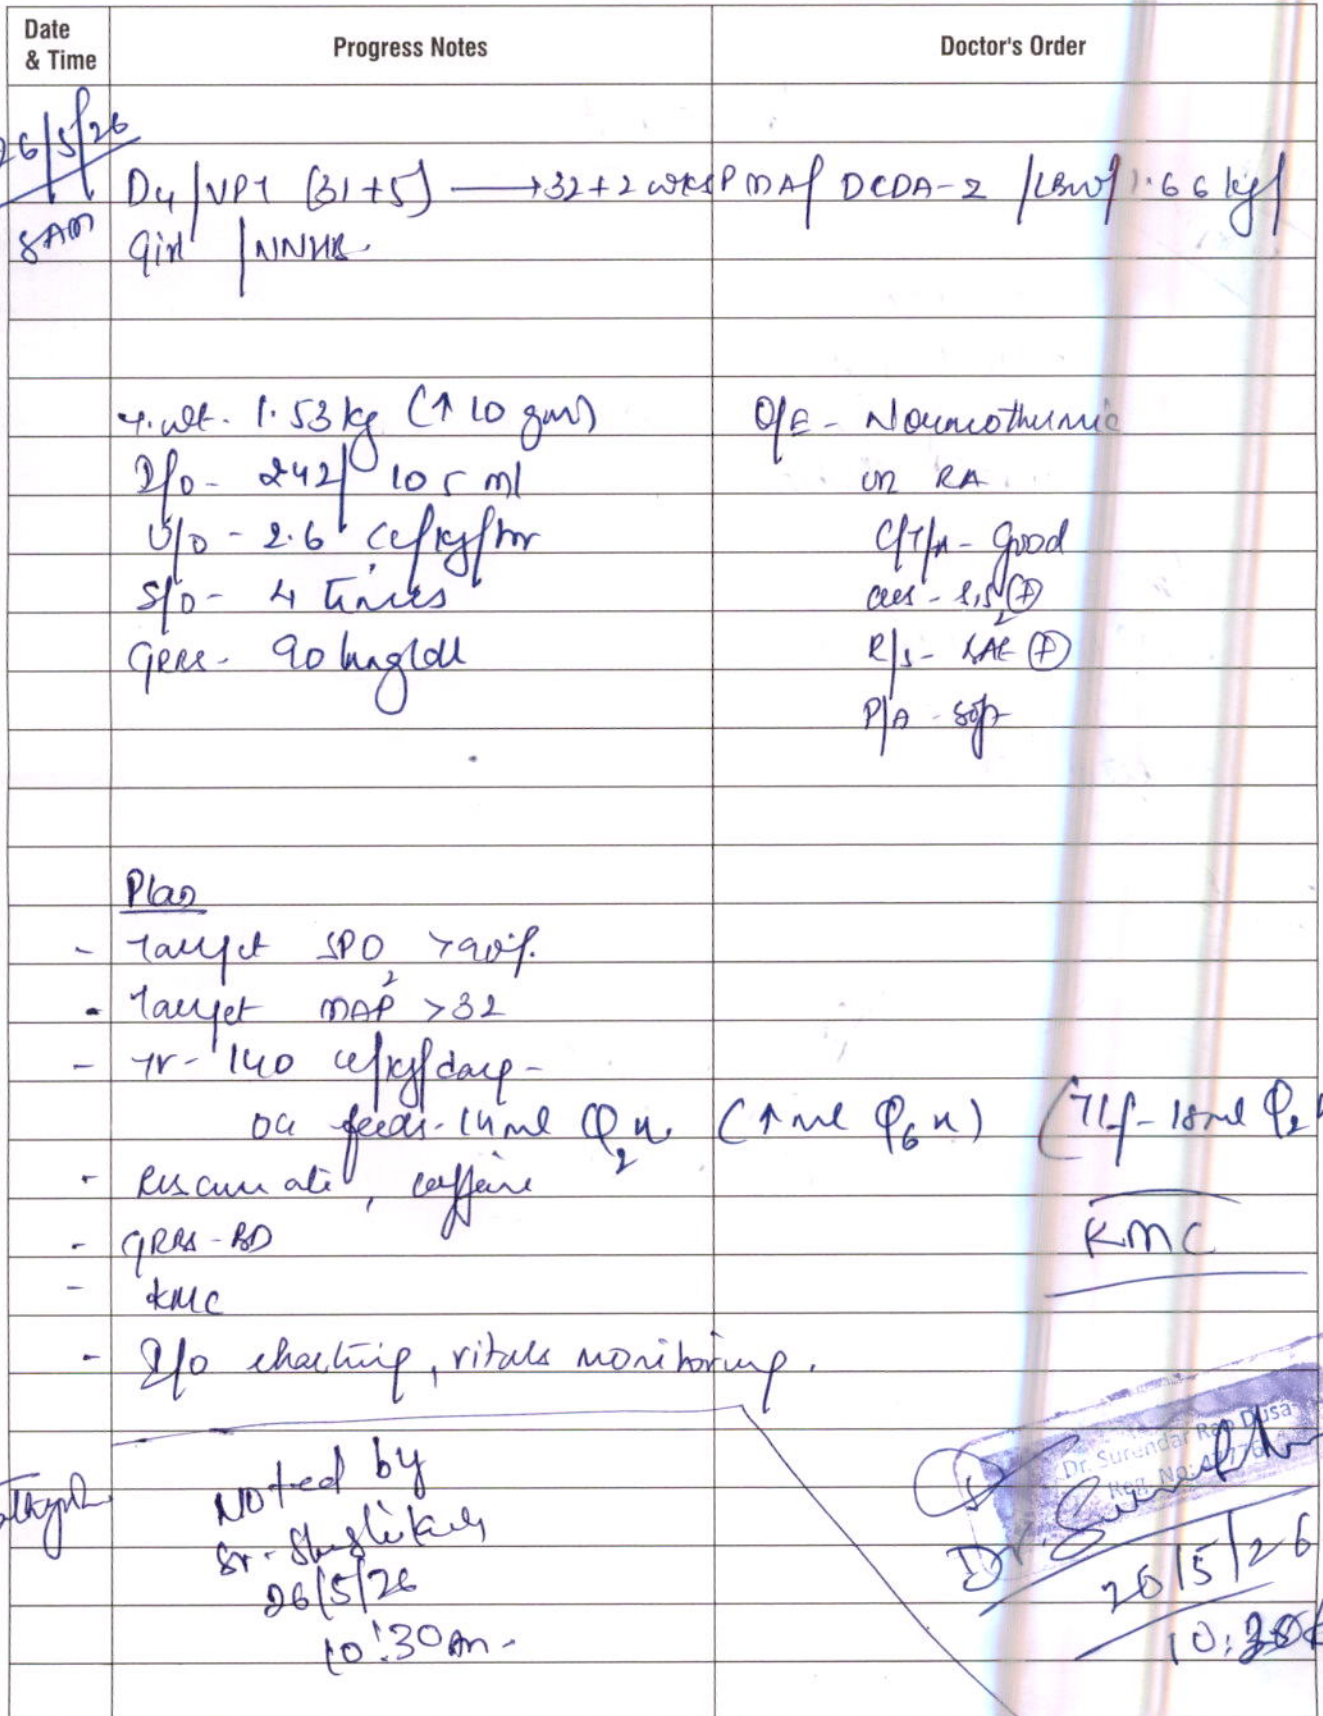 Date & Time
Progress Notes
Doctor's Order
26/5/26
8AM
D4/VPT (31+5) → 32+2 wks PMA/ DCDA-2 /LBW/ 1.66 kg/
Girl /NNHB
T.wt. 1.53 kg (↑ 10 gms)
I/O - 242/ 105 ml
U/O - 2.6 cc/kg/hr
S/O - 4 times
GRBS - 90 mg/dl
O/E - Normothermic
on RA
C/T/A - Good
CVS - S1S2 ⊕
R/S - BAE ⊕
P/A - soft
Plan
- Target SPO2 >90%
- Target MAP >32
- TV - 140 cc/kg/day -
OG feeds - 14 ml Q2H (↑ ml Q6H) (Tlf - 18 ml Q2
- , caffeine
- GRBS - BD
KMC
- KMC
- I/O charting, vitals monitoring.
Dr. Surendar Rao Dusa
Reg. No:
Noted by
Sr.
26/5/26
10:30Am.
Dr.
26/5/26
10:30